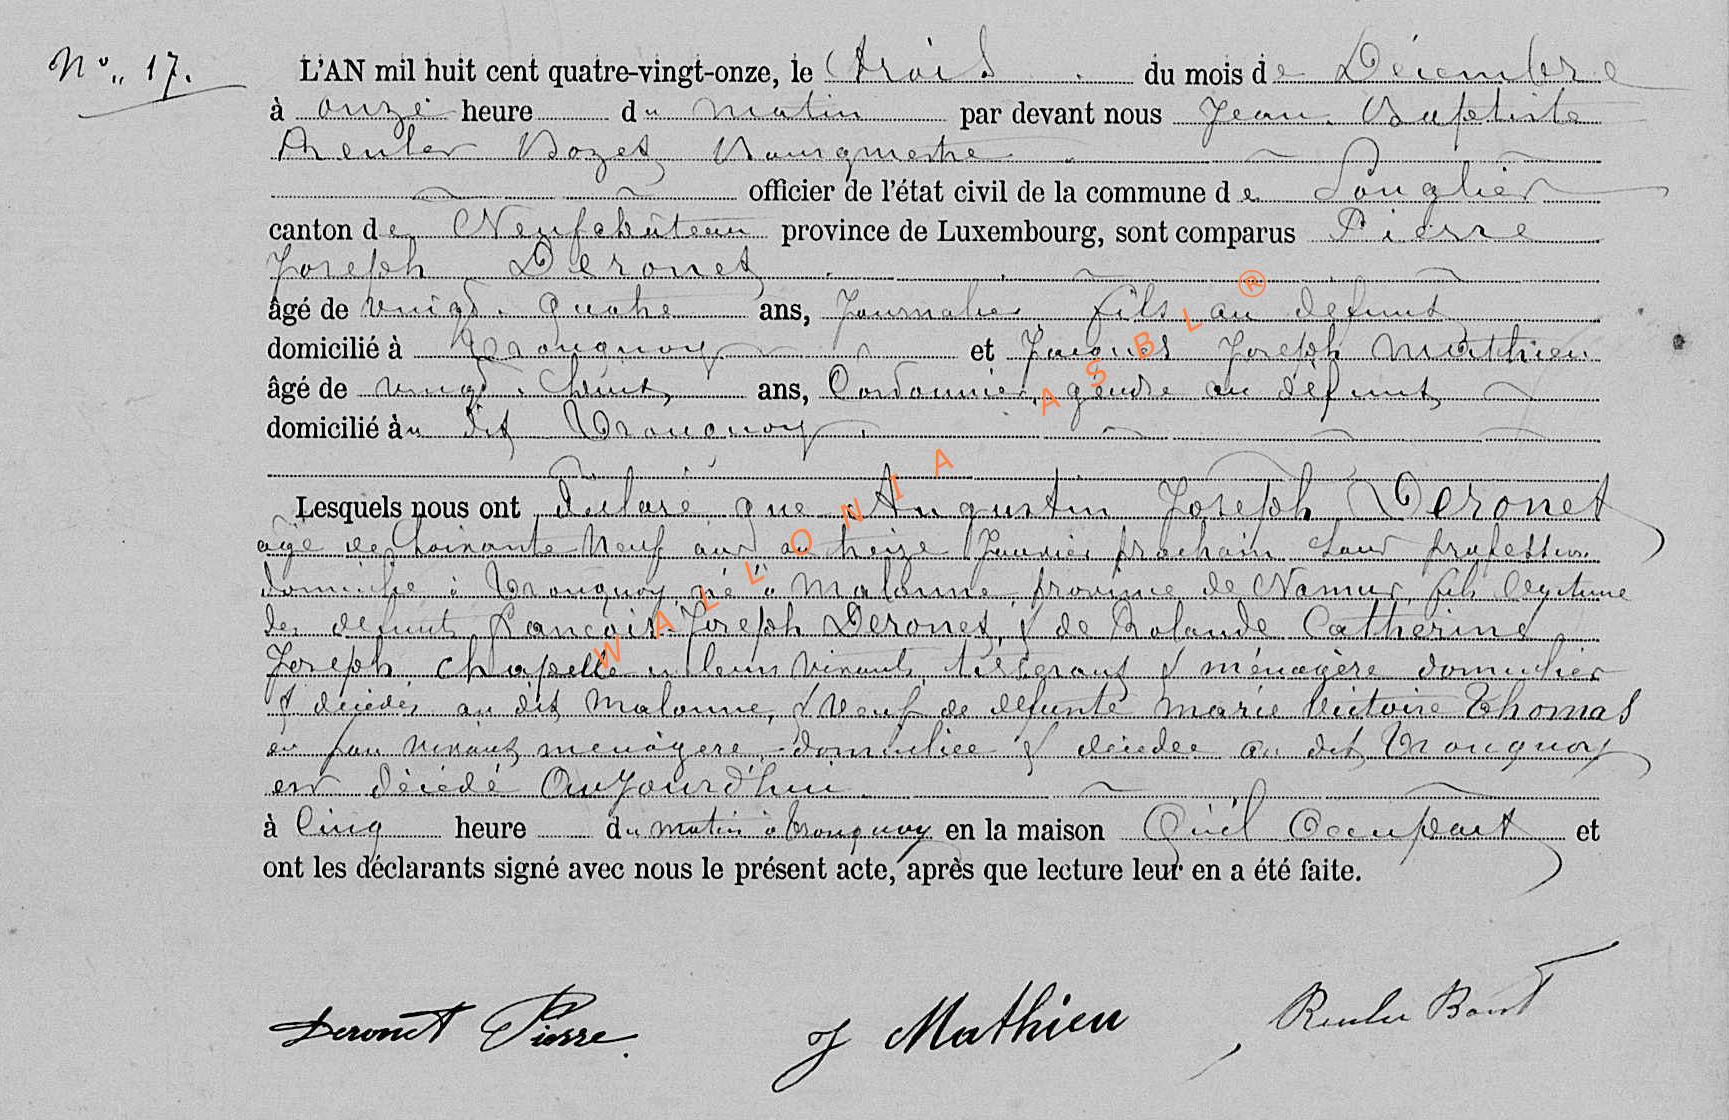 N° 17.
L'AN mil huit cent quatre-vingt-onze, le trois du mois de Décembre
à onze heure du matin par devant nous Jean Baptiste
Reuler Bozet Bourgmestre
officier de l'état civil de la commune de Longlier
canton de Neufchâteau province de Luxembourg, sont comparus Pierre
Joseph Deronet
âgé de vingt quatre ans, Journalier fils au défunt
domicilié à Tronquoy et Jacques Joseph Mathieu
âgé de vingt huit ans, Cordonnier, gendre au défunt
domicilié au dit Tronquoy
Lesquels nous ont déclaré que Augustin Joseph Deronet
âgé de soixante neuf ans au treize Janvier prochain sans profession
domicilié à Tronquoy né à Malonne, province de Namur, fils légitime
des défunts François Joseph Deronet, & de Rolande Catherine
Joseph Chapelle en leurs vivants, tisserant & ménagère domiciliés
& décédés au dit Malonne, & veuf de défunte Marie Victoire Thomas
en son vivant ménagère, domiciliée & décédée au dit Tronquoy
est décédé aujourd'hui
à cinq heure du matin à Tronquoy en la maison qu'il occupait et
ont les déclarants signé avec nous le présent acte, après que lecture leur en a été faite.
Deronet Pierre. J Mathieu Reuler
WALLONIA ASBL ®